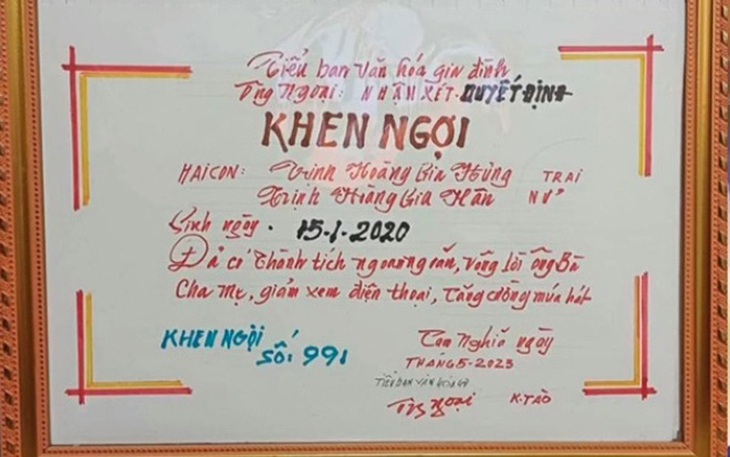 Tiểu ban văn hóa gia đình
Ông Ngoại: NHẬN XÉT - QUYẾT ĐỊNH
KHEN NGỢI
HAI CON: Trịnh Hoàng Gia Hưng TRAI
Trịnh Hoàng Gia Hân NỮ
Sinh ngày. 15-1-2020
Đã có thành tích ngoan ngoãn, vâng lời Ông Bà
Cha mẹ, giảm xem điện thoại, tăng cường múa hát
KHEN NGỢI
SỐ: 991
Tam Nghĩa ngày
THÁNG 5-2023
TIỂU BAN VĂN HÓA GĐ
Ông Ngoại K.TÀO